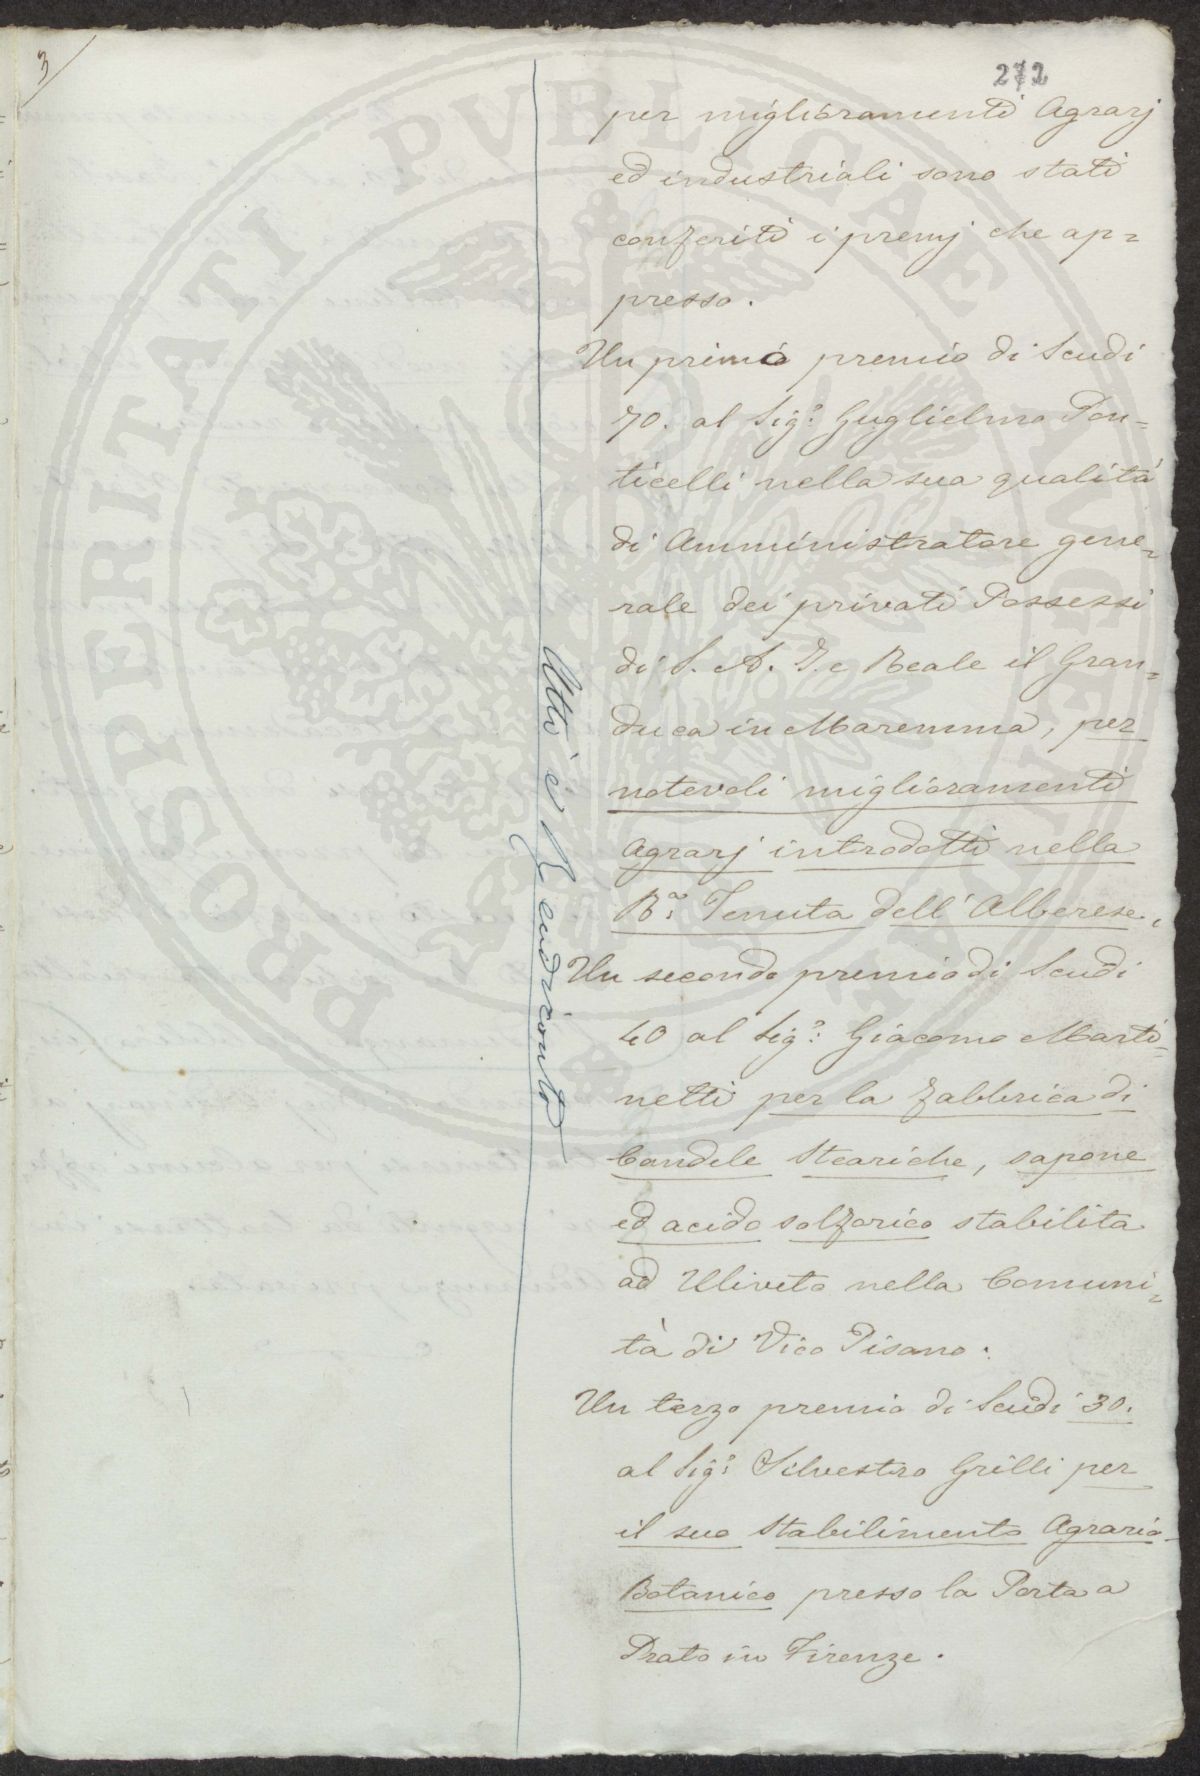 3
272
per miglioramenti Agrarj
ed industriali sono stati
conferiti i premj che ap=
presso.
Un primo premio di Scudi
70. al Sigʳ: Guglielmo Pon=
ticelli nella sua qualità
di Amministratore gene=
rale dei privati Possessi
di S. A. I. e Reale il Gran=
duca in Maremma, per
notevoli miglioramenti
Agrarj introdotti nella
Rᵃ: Tenuta dell'Alberese.
Un secondo premio di Scudi
40 al Sigʳ: Giacomo Marti=
netti per la fabbrica di
Candele Steariche, sapone
ed acido solforico stabilita
ad Uliveto nella Comuni=
tà di Vico Pisano.
Un terzo premio di Scudi 30.
al Sigʳ: Silvestro Grilli per
il suo Stabilimento Agrario
Botanico presso la Porta a
Prato in Firenze.
Atti è Rendiconto
PROSPERITATI PVBLICAE AVGENDAE